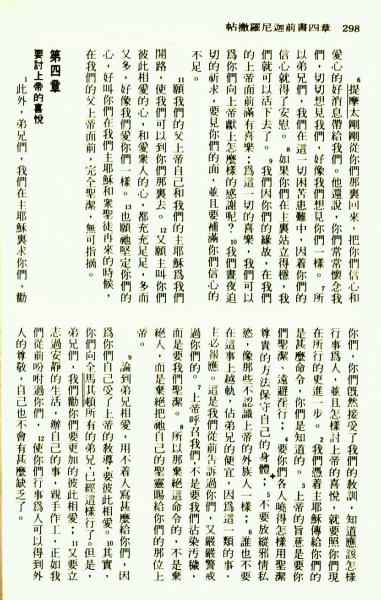 帖撒羅尼迦前書四章 298
6提摩太剛剛從你們那裏回來，把你們信心和
愛心的好消息帶給我們。他還說，你們常常懷念我
們，切切想見我們，好像我們想見你們一樣。7所
以弟兄們，我們在這一切困苦患難中，因着你們的
信心就得了安慰。8如果你們在主裏站立得穩，我
們就可以活下去了。9我們因你們的緣故，在我們
的上帝面前滿有喜樂；爲這一切的喜樂，我們可以
爲你們向上帝獻上怎麼樣的感謝呢？10我們晝夜迫
切的祈求，要見你們的面，並且要補滿你們信心的
不足。
11願我們的父上帝自己和我們的主耶穌爲我們
開路，使我們可以到你們那裏去。12又願主叫你們
彼此相愛的心，和愛衆人的心，都充充足足，多而
又多，好像我們愛你們一樣。13也願祂堅定你們的
心，好叫你們在我們主耶穌和衆聖徒再來的時候，
在我們的父上帝面前，完全聖潔，無可指摘。
第四章
要討上帝的喜悅
1此外，弟兄們，我們在主耶穌裏求你們、勸
你們，你們旣然接受了我們的教訓，知道應該怎樣
行事爲人，並且怎樣討上帝的喜悅，就要照你們現
在所行的更進一步。2我們憑着主耶穌傳給你們的
是甚麼命令，你們是知道的。3上帝的旨意是要你
們聖潔、遠避淫行；4要你們各人曉得怎樣用聖潔
尊貴的方法保守自己的身體；5不要放縱邪情私
慾，像那些不認識上帝的外族人一樣；6誰也不要
在這事上越軌，佔弟兄的便宜，因爲這一類的事，
主必報應。這是我們從前告訴過你們，又嚴嚴警戒
過你們的。7上帝呼召我們，不是要我們沾染污穢，
而是要我們聖潔。8所以那棄絕這命令的，不是棄
絕人，而是棄絕把祂自己的聖靈賜給你們的那位上
帝。
9論到弟兄相愛，用不着人寫甚麼給你們，因
爲你們自己受了上帝的敎導，要彼此相愛。10其實，
你們向全馬其頓所有的弟兄，已經這樣行了。但是，
弟兄們，我們勸你們要更加的彼此相愛；11又要立
志過安靜的生活，辦自己的事，親手作工，正如我
們從前吩咐過你們，12使你們行事爲人可以得到外
人的尊敬，自己也不會有甚麼缺乏了。